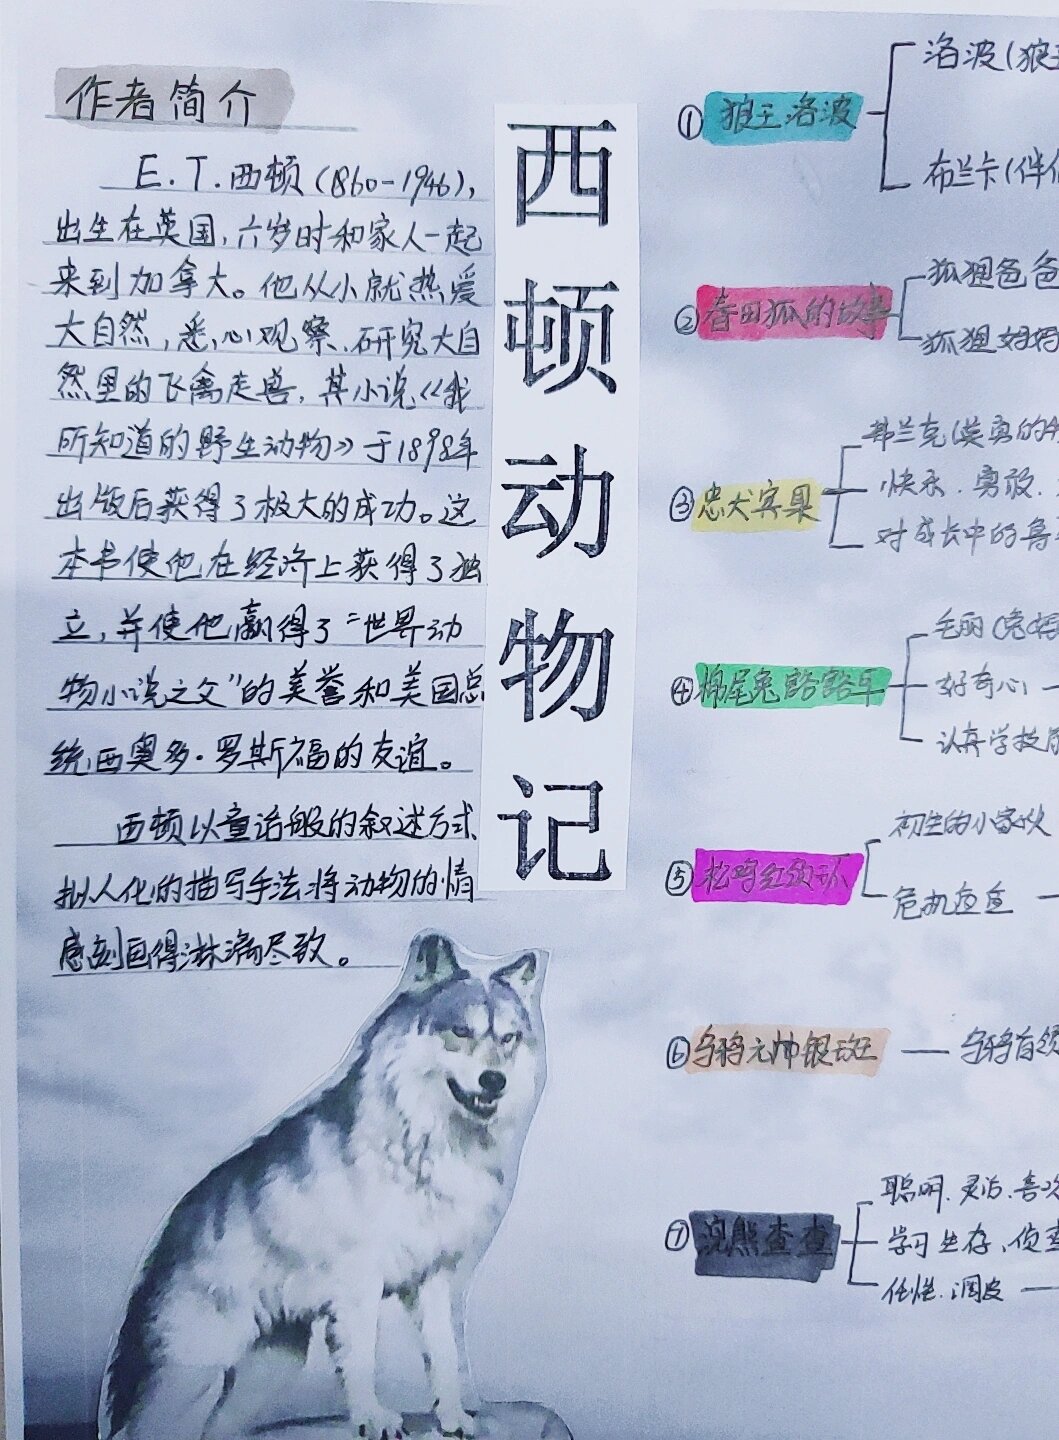 作者简介
E.T.西顿(1860-1946),
出生在英国,六岁时和家人一起
来到加拿大。他从小就热爱
大自然,悉心观察、研究大自
然里的飞禽走兽,其小说《我
所知道的野生动物》于1898年
出版后获得了极大的成功。这
本书使他在经济上获得了独
立,并使他赢得了“世界动
物小说之父”的美誉和美国总
统西奥多·罗斯福的友谊。
西顿以童话般的叙述方式、
拟人化的描写手法将动物的情
感刻画得淋漓尽致。
西顿动物记
①狼王洛波
洛波(狼王
布兰卡(伴侣
②春田狐的故事
狐狸爸爸
狐狸妈妈
③忠犬宾果
弗兰克(英勇的牛
快乐、勇敢、
对成长中的鲁
④棉尾兔豁豁耳
毛丽(兔妈
好奇心
认真学技
⑤松鸡红颈环
初生的小家伙
危机重重
⑥乌鸦元帅银斑
乌鸦首领
⑦浣熊查查
聪明、灵活、喜欢
学习生存、侦查
任性、调皮